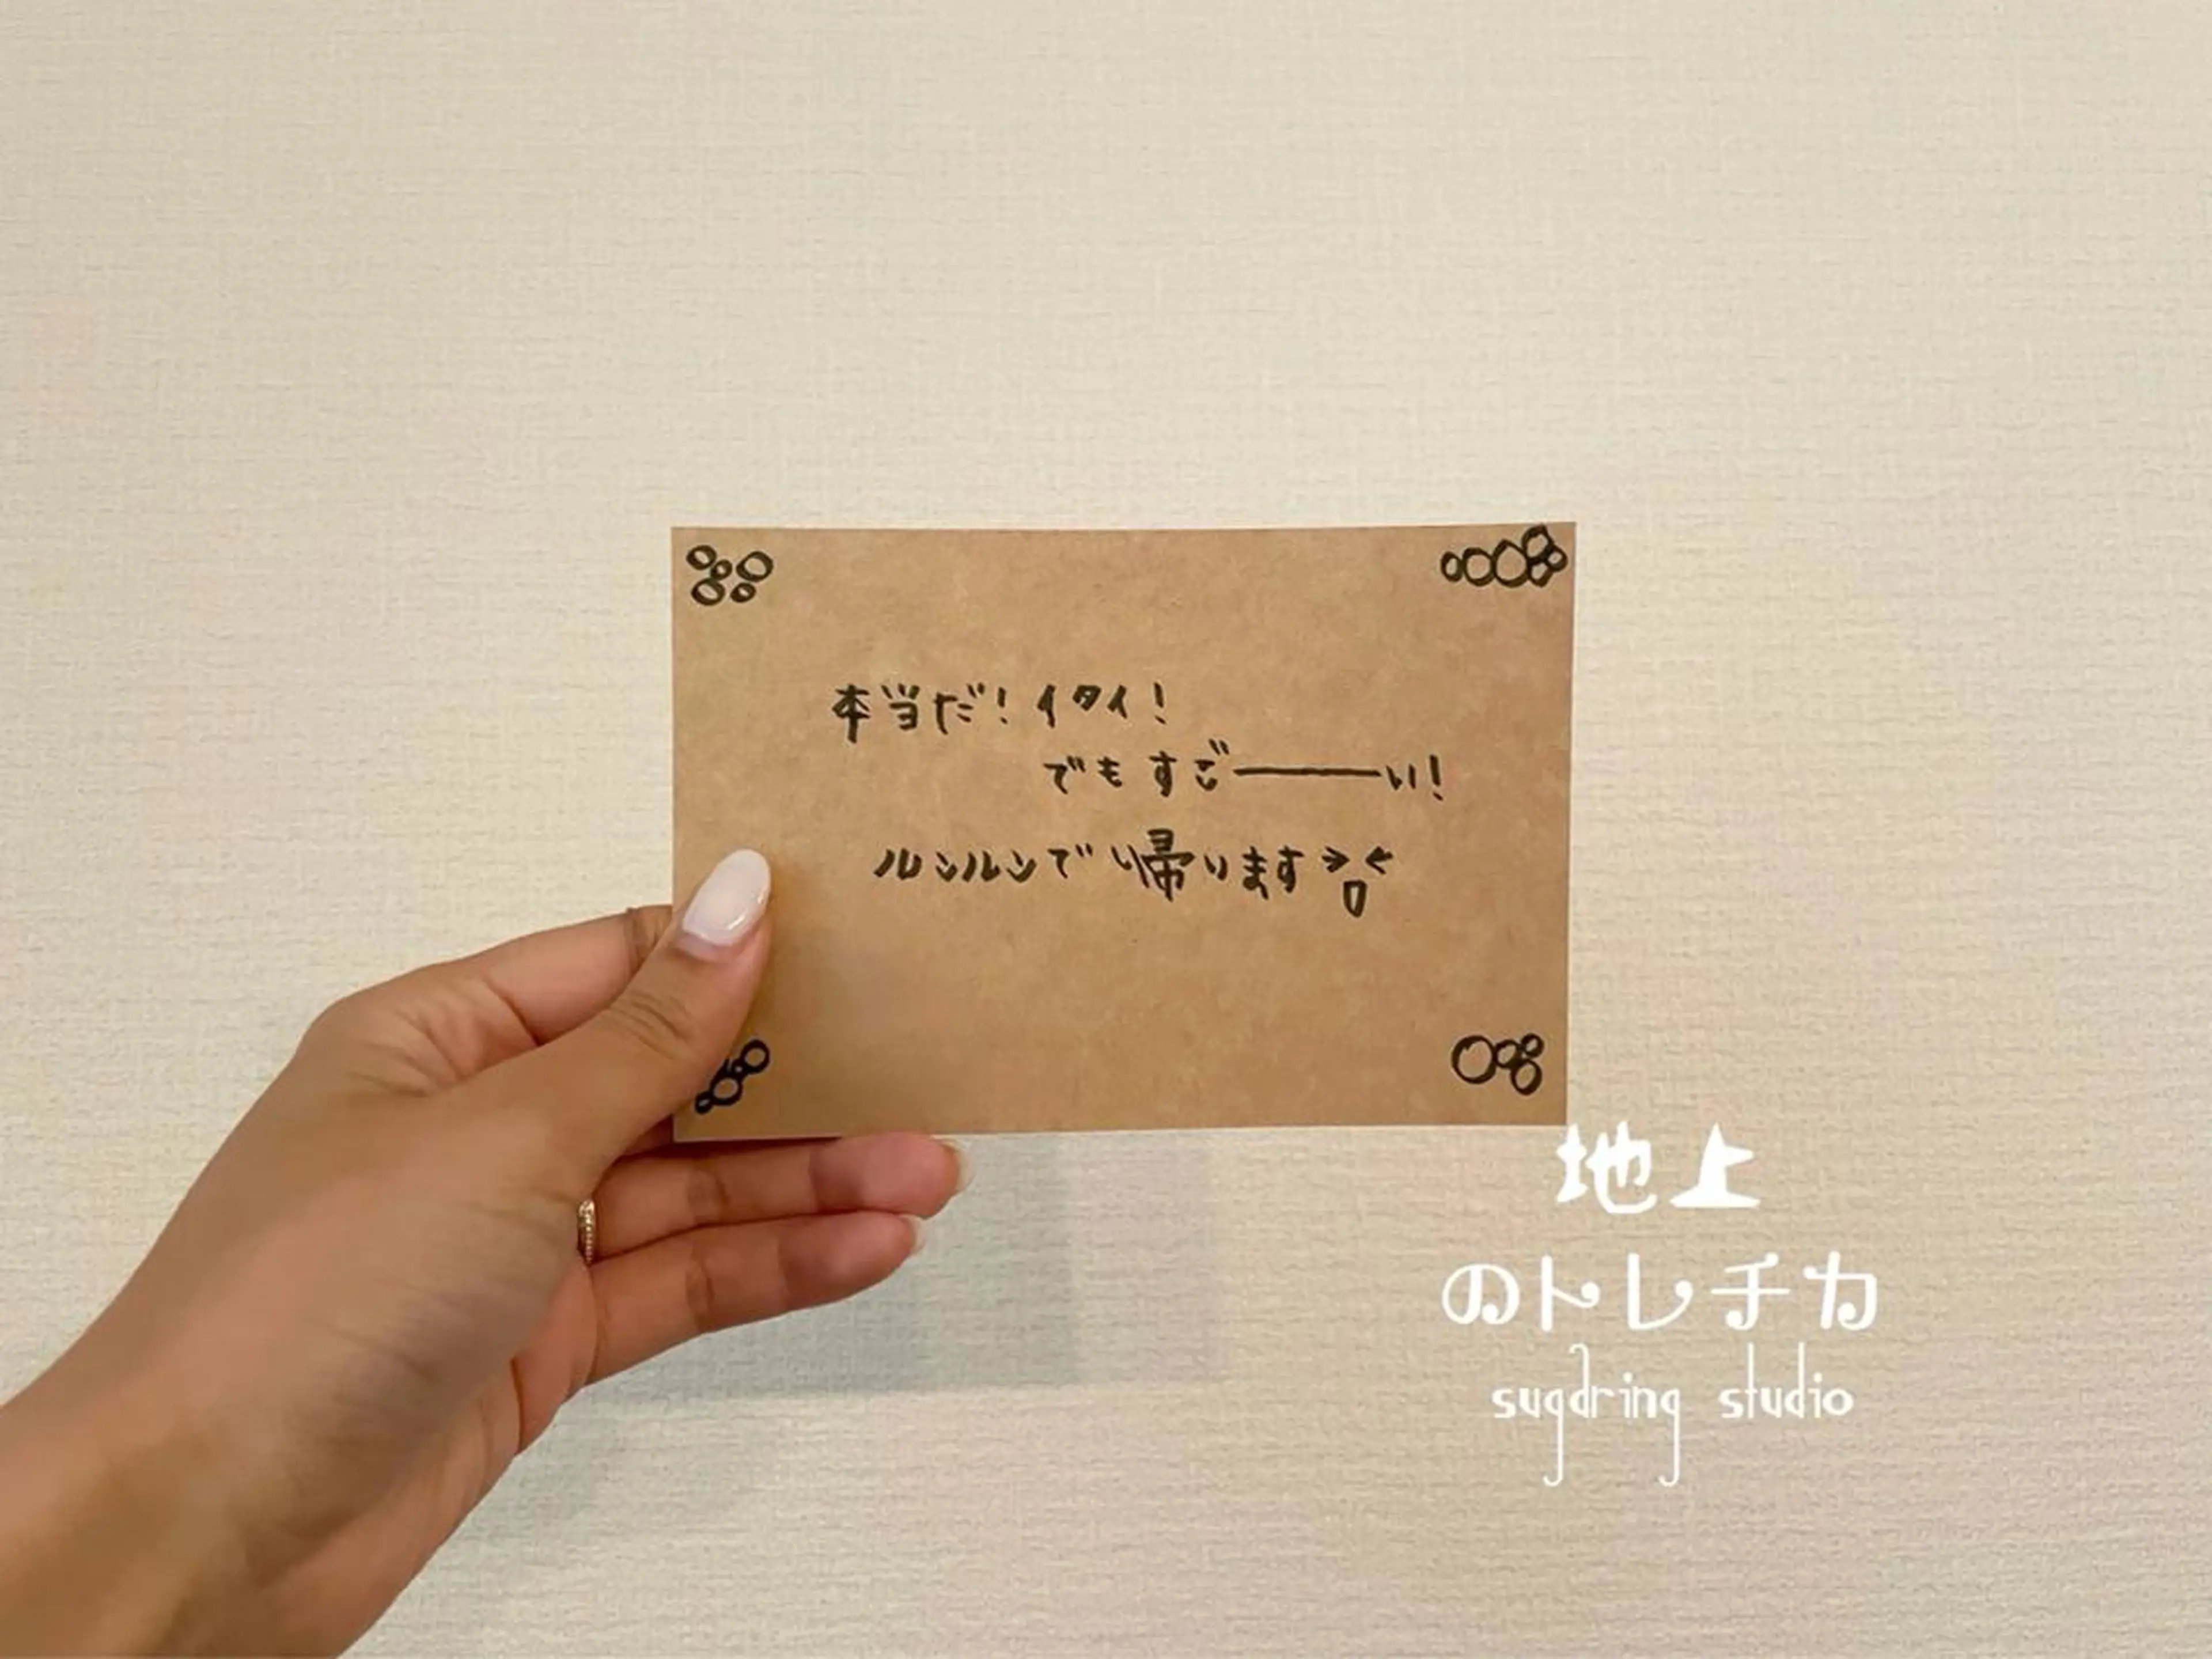 本当だ！イタイ！
でもすごーーーい！
ルンルンで帰ります＞０＜
地上
のトレチカ
sugdring studio